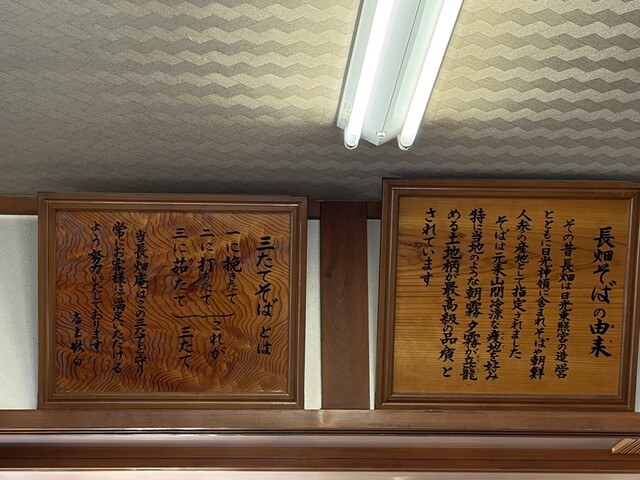 長畑そばの由来
その昔長畑は日光東照宮の造営
とともに日光神領に含まれそばや朝鮮
人参の産地として指定されました
そばは元来山間冷涼な産地を好み
特に当地のような朝霧夕霧が立籠
める土地柄が最高級の品質と
されています
三たてそばとは
一に挽きたて
二に打たて これが
三に茹たて 三たて
当長畑庵はこの三たてを守り
常にお客様に満足いただける
よう努力いたしております
店主敬白